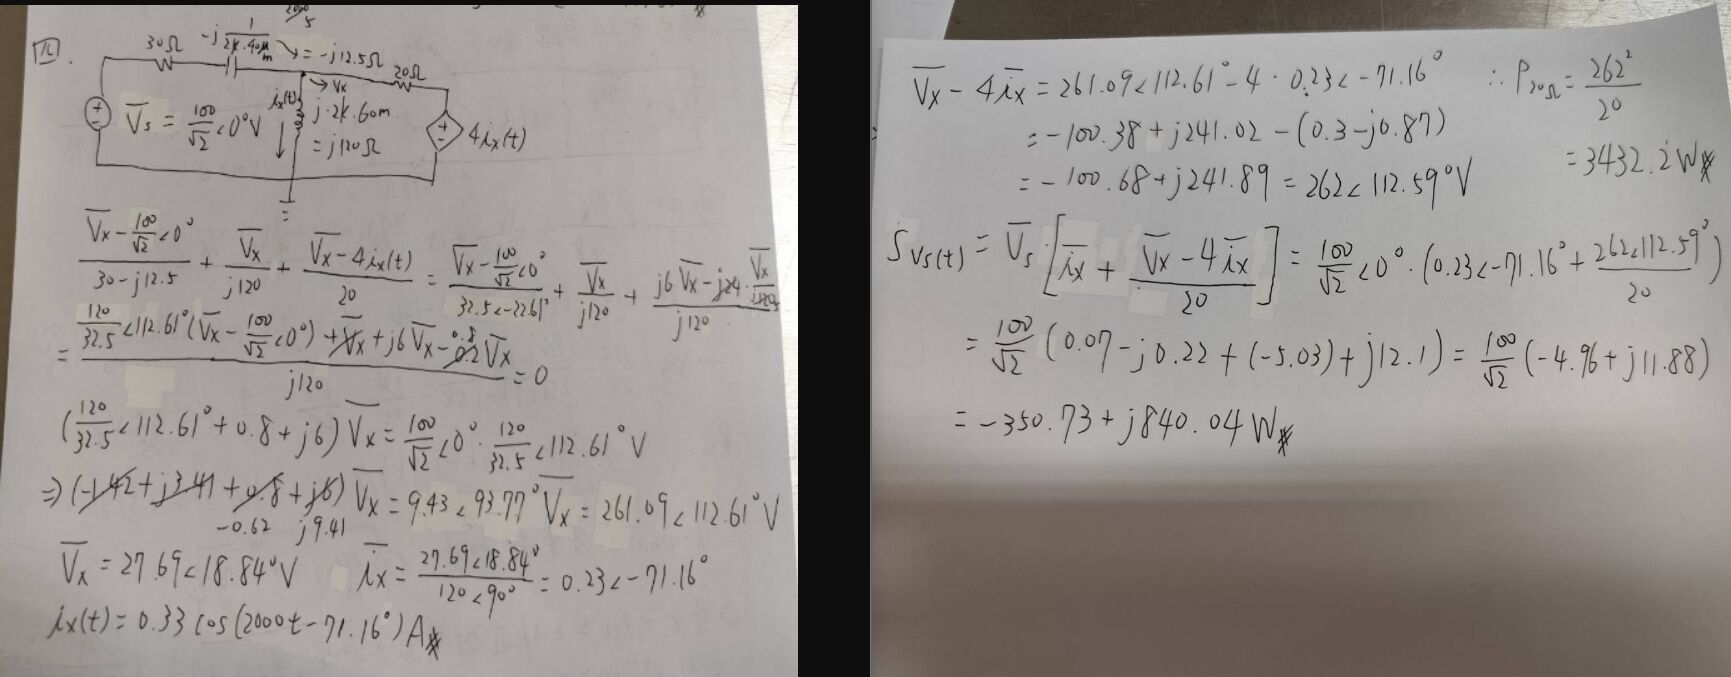 12.
30Ω
-j 1/(2k·40μ) m
2000/5
= -j12.5Ω
20Ω
→ Vx
ix(t)
V̅s = 100/√2 <0° V
j·2k·60m
= j120Ω
4ix(t)
(V̅x - 100/√2 <0°)/(30-j12.5) + V̅x/j120 + (V̅x - 4ix(t))/20 = (V̅x - 100/√2 <0°)/(32.5<-22.61°) + V̅x/j120 + (j6V̅x - j24·V̅x/j120)/j120
= (120/32.5 <112.61° (V̅x - 100/√2 <0°) + V̅x + j6V̅x - 0.2V̅x)/j120 = 0
0.8
(120/32.5 <112.61° + 0.8 + j6) V̅x = 100/√2 <0° · 120/32.5 <112.61° V
⇒ (-1.42 + j3.41 + 0.8 + j6) V̅x = 9.43 <93.77° V̅x = 261.09 <112.61° V
-0.62 j9.41
V̅x = 27.69 <18.84° V i̅x = 27.69<18.84°/120<90° = 0.23 <-71.16°
ix(t) = 0.33 cos(2000t - 71.16°) A※
V̅x - 4i̅x = 261.09 <112.61° - 4 · 0.23 <-71.16° ∴ P20Ω = 262²/20
= -100.38 + j241.02 - (0.3 - j0.87)
= 3432.2 W※
= -100.68 + j241.89 = 262 <112.59° V
Svs(t) = V̅s [i̅x + (V̅x - 4i̅x)/20] = 100/√2 <0° · (0.23 <-71.16° + 262<112.59°/20)
= 100/√2 (0.07 - j0.22 + (-5.03) + j12.1) = 100/√2 (-4.96 + j11.88)
= -350.73 + j840.04 W※